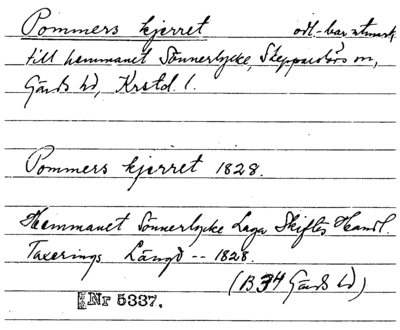 Pommers kjerret odl.-bar utmark
till hemmanet Sönnerlycke, Skepparslövs sn,
Gärds hd, Krstd. l.
Pommers kjerret 1828.
Hemmanet Sönnerlycke Laga Skiftes Handl.
Taxerings Längd -- 1828.
(B34 Gärds hd)
Nr 5337.